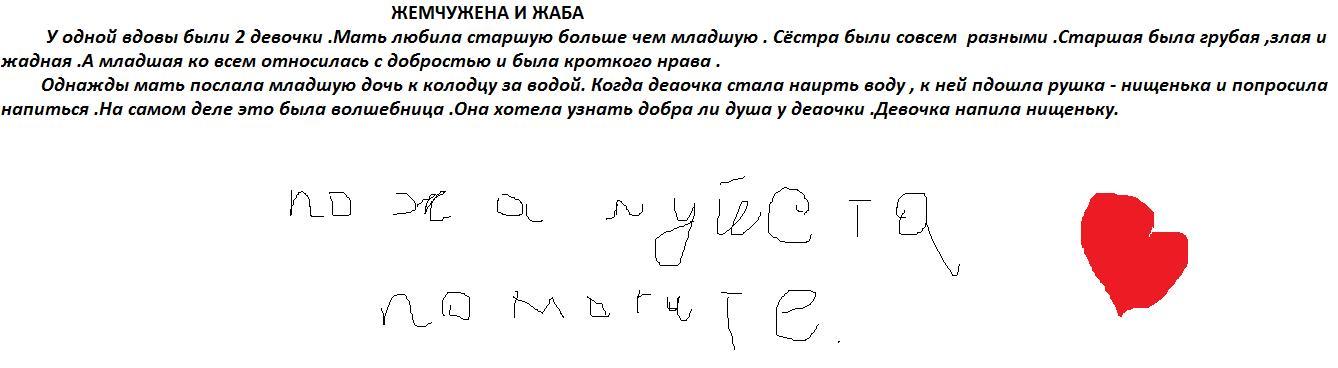 ЖЕМЧУЖЕНА И ЖАБА
У одной вдовы были 2 девочки .Мать любила старшую больше чем младшую . Сёстра были совсем  разными .Старшая была грубая ,злая и
жадная .А младшая ко всем относилась с добростью и была кроткого нрава .
Однажды мать послала младшую дочь к колодцу за водой. Когда деаочка стала наирть воду , к ней пдошла рушка - нищенька и попросила
напиться .На самом деле это была волшебница .Она хотела узнать добра ли душа у деаочки .Девочка напила нищеньку.
пожалуйста
помогите.